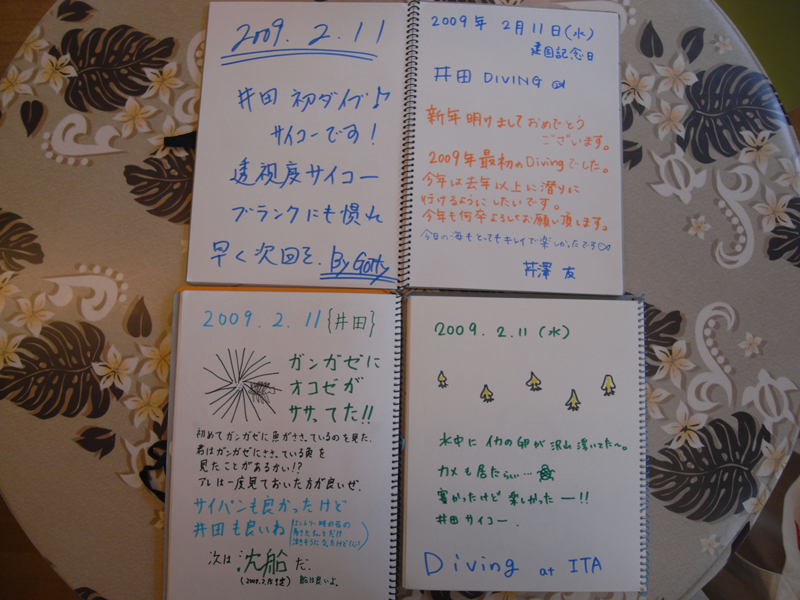 2009.2.11
井田 初ダイブ♪
サイコーです！
透視度サイコー
ブランクにも慣れ
早く次回を。By Gotty
2009年 2月11日(水)
建国記念日
井田 DIVING
新年明けましておめでとう
ございます。
2009年最初のDivingでした。
今年は去年以上に潜りに
行けるようにしたいです。
今年も何卒よろしくお願い頂します。
今日の海もとってもキレイで楽しかったです
芹澤 友
2009.2.11{井田}
ガンガゼに
オコゼが
ササってた!!
初めてガンガゼに魚がささっているのを見た.
君はガンガゼにささっている魚を
見たことがあるかい!?
アレは一度見ておいた方が良いぜ.
サイパンも良かったけど
井田も良いわ
次は沈船だ.
船は良いよ.
2009.2.11(水)
水中にイカの卵が沢山浮いてた〜。
カメも居たらしい…
寒かったけど楽しかったー!!
井田サイコー.
Diving at ITA